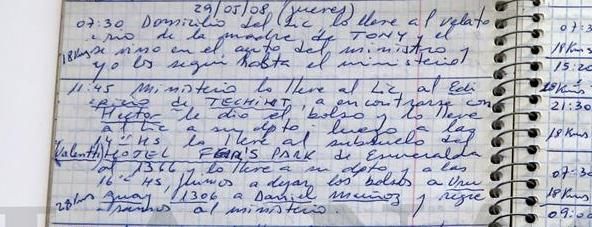 29/05/08 (jueves)
07:30 Domicilio del Lic lo lleve al velato
orio de la madre de TONY y el
se vino en el auto del ministro y
18Kms yo los segui hasta el ministerio
11:45 ministerio lo lleve al Lic al Edi
ficio de TECHINT, a encontrarse con
Hector le dio el bolso y lo lleve
al Lic a su dpto, luego a las
HS lo lleve al subsuelo del
HOTEL FEIR'S PARK de Esmeralda
1366 y lo lleve a su dpto, a las
16 HS fuimos a dejar los bolsos a Uru
28Kms guay 1306 a Daniel Muñoz y regre
samos al ministerio.
07:3
18Kms
15:20
18Kms
21:30
18Kms
07:30
18Kms
09:00